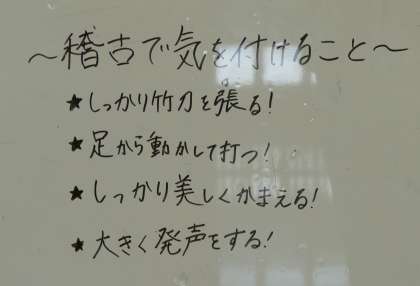 ～稽古で気を付けること～
★しっかり竹刀を張る!
★足から動かして打つ!
★しっかり美しくかまえる!
★大きく発声をする!